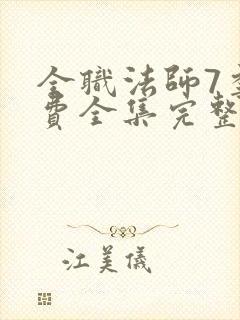 全職法師7季
費全集完整
江美儀